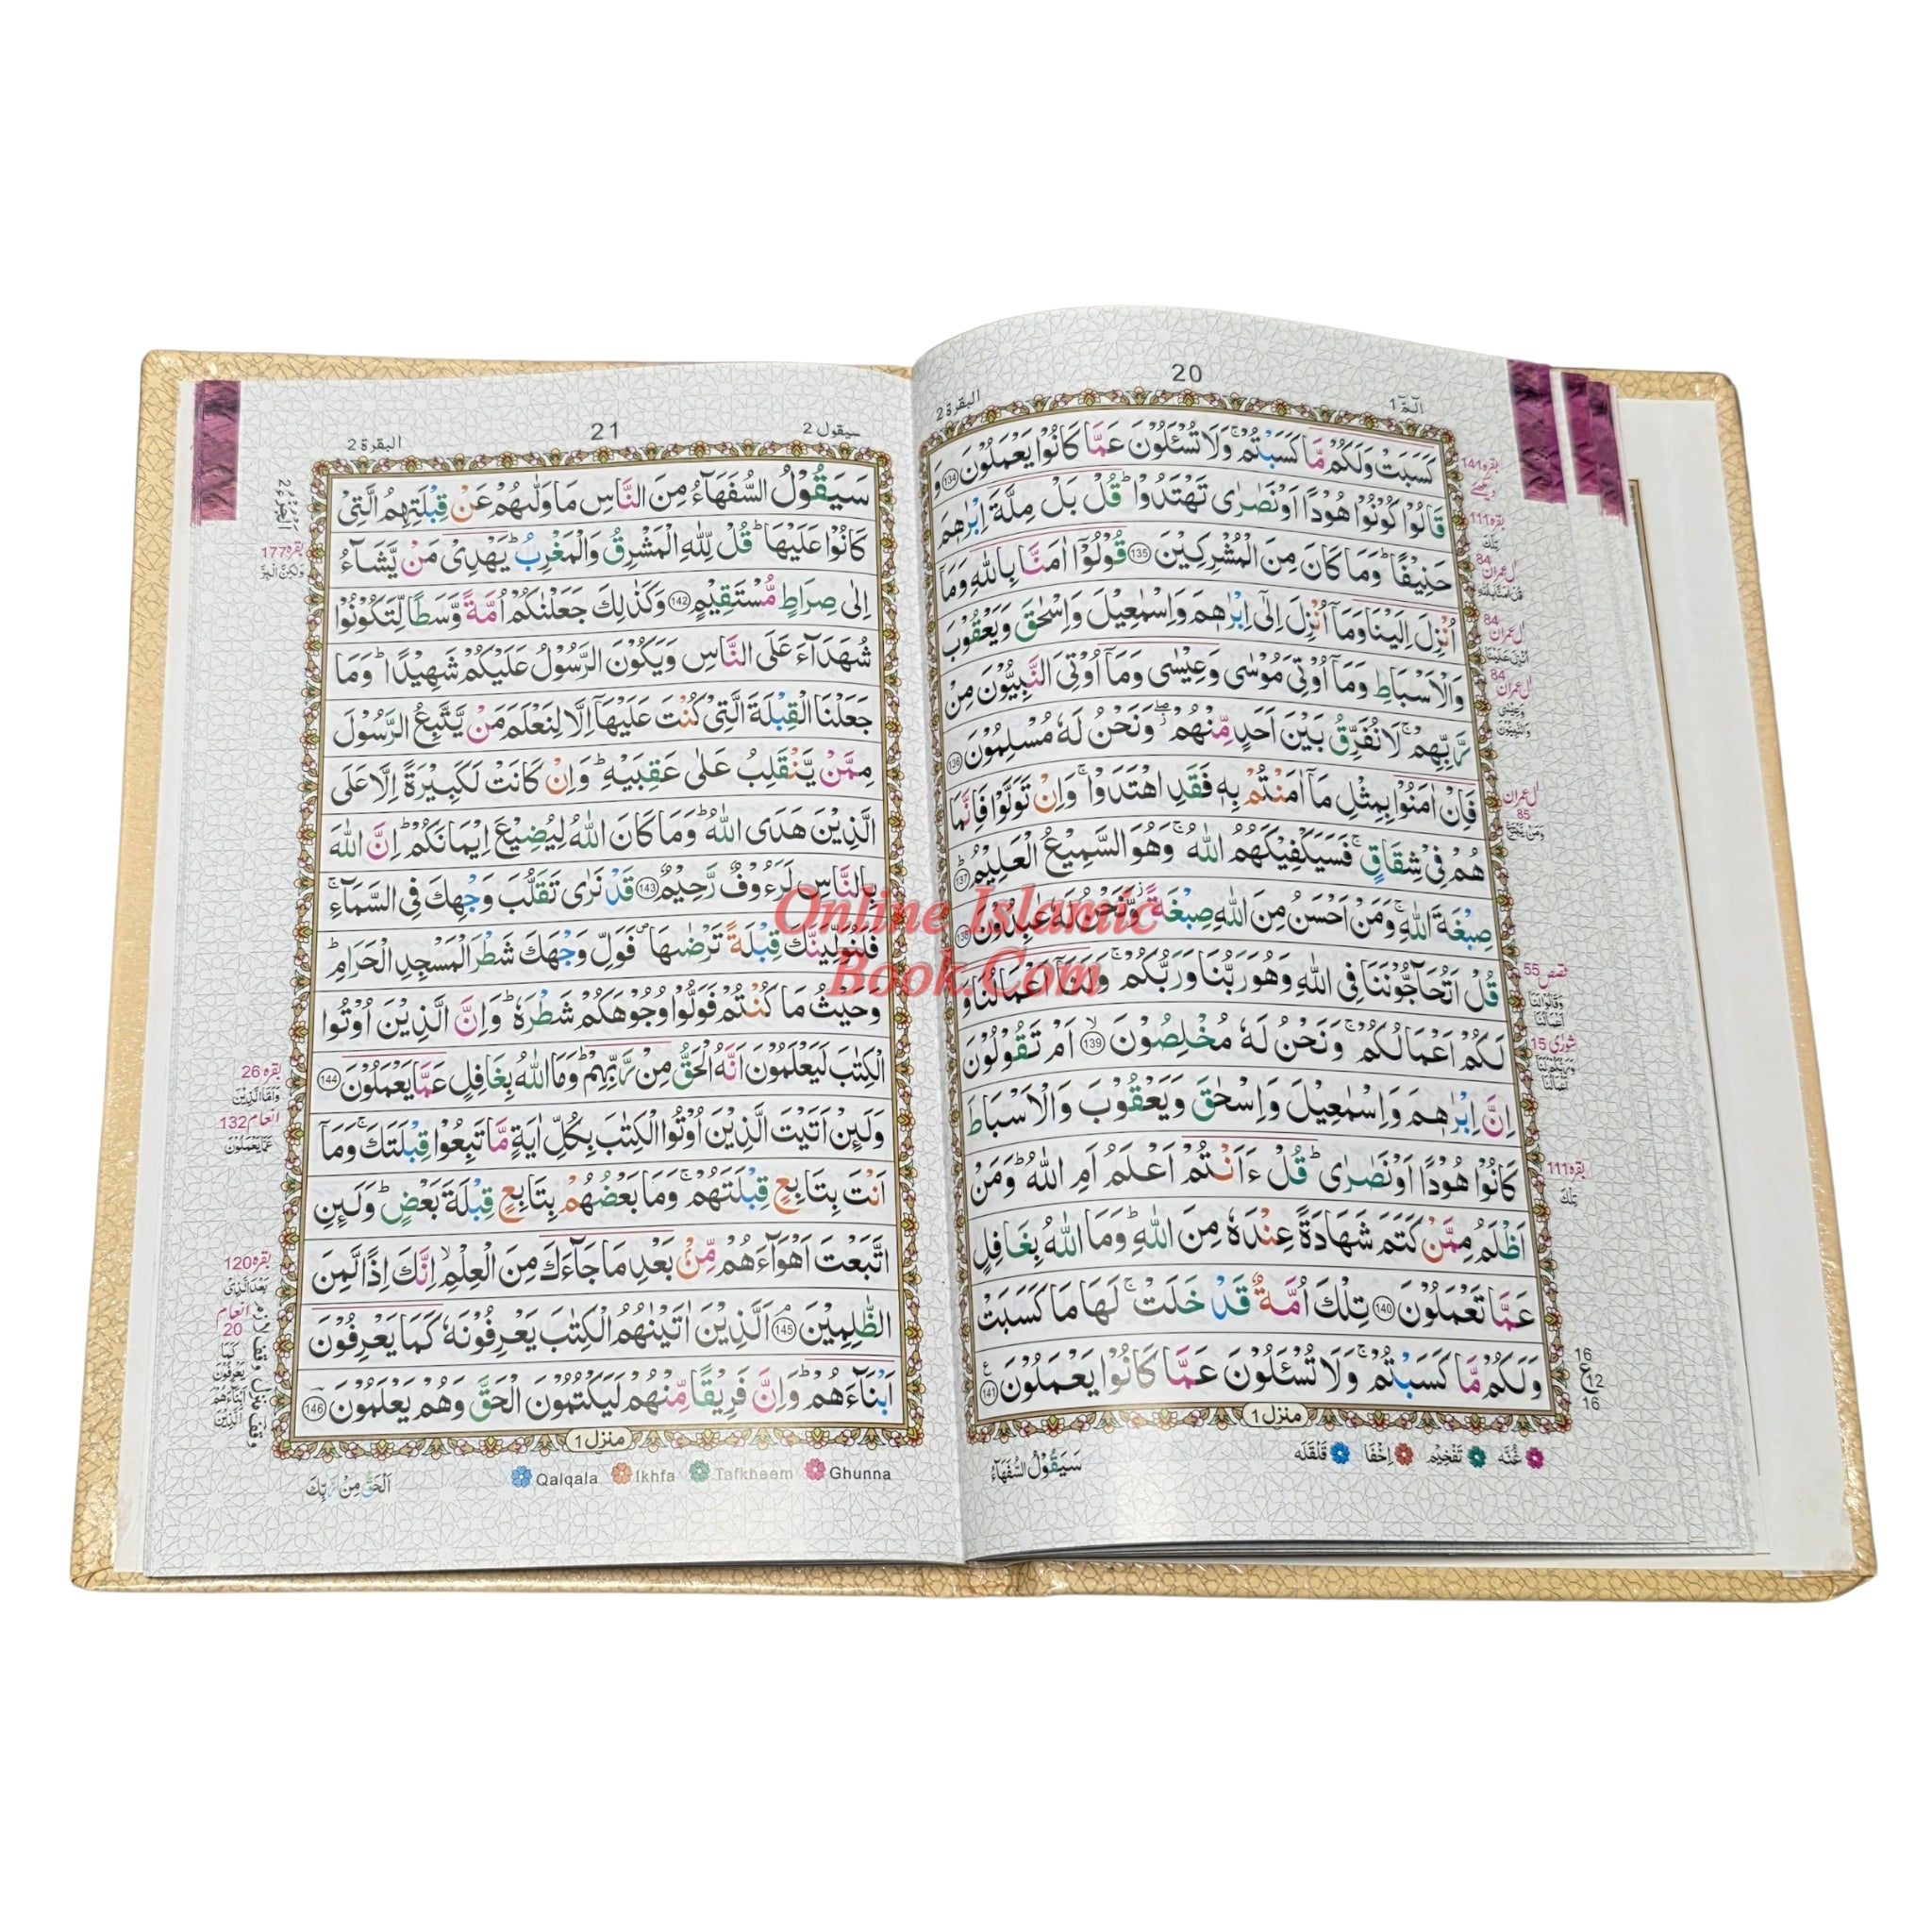 20
الٓمّٓ 1
البقرة 2
كَسَبَتْ وَلَكُمْ مَّا كَسَبْتُمْ ۚ وَلَا تُسْـَٔلُوْنَ عَمَّا كَانُوْا يَعْمَلُوْنَ 134 وَ
قَالُوْا كُوْنُوْا هُوْدًا اَوْ نَصٰرٰى تَهْتَدُوْا ؕ قُلْ بَلْ مِلَّةَ اِبْرٰهٖمَ
حَنِيْفًا ؕ وَمَا كَانَ مِنَ الْمُشْرِكِيْنَ 135 قُوْلُوْٓا اٰمَنَّا بِاللّٰهِ وَمَآ
اُنْزِلَ اِلَيْنَا وَمَآ اُنْزِلَ اِلٰٓى اِبْرٰهٖمَ وَاِسْمٰعِيْلَ وَاِسْحٰقَ وَيَعْقُوْبَ
وَالْاَسْبَاطِ وَمَآ اُوْتِىَ مُوْسٰى وَعِيْسٰى وَمَآ اُوْتِىَ النَّبِيُّوْنَ مِنْ
رَّبِّهِمْ ۚ لَا نُفَرِّقُ بَيْنَ اَحَدٍ مِّنْهُمْ ۖ وَنَحْنُ لَهٗ مُسْلِمُوْنَ 136
فَاِنْ اٰمَنُوْا بِمِثْلِ مَآ اٰمَنْتُمْ بِهٖ فَقَدِ اهْتَدَوْا ۚ وَاِنْ تَوَلَّوْا فَاِنَّمَا
هُمْ فِىْ شِقَاقٍ ۚ فَسَيَكْفِيْكَهُمُ اللّٰهُ ۚ وَهُوَ السَّمِيْعُ الْعَلِيْمُ ؕ 137
صِبْغَةَ اللّٰهِ ۚ وَمَنْ اَحْسَنُ مِنَ اللّٰهِ صِبْغَةً ۖ وَّنَحْنُ لَهٗ عٰبِدُوْنَ 138
قُلْ اَتُحَآجُّوْنَنَا فِى اللّٰهِ وَهُوَ رَبُّنَا وَرَبُّكُمْ ۚ وَلَنَآ اَعْمَالُنَا وَ
لَكُمْ اَعْمَالُكُمْ ۚ وَنَحْنُ لَهٗ مُخْلِصُوْنَ ۙ 139 اَمْ تَقُوْلُوْنَ
اِنَّ اِبْرٰهٖمَ وَاِسْمٰعِيْلَ وَاِسْحٰقَ وَيَعْقُوْبَ وَالْاَسْبَاطَ
كَانُوْا هُوْدًا اَوْ نَصٰرٰى ؕ قُلْ ءَاَنْتُمْ اَعْلَمُ اَمِ اللّٰهُ ؕ وَمَنْ
اَظْلَمُ مِمَّنْ كَتَمَ شَهَادَةً عِنْدَهٗ مِنَ اللّٰهِ ؕ وَمَا اللّٰهُ بِغَافِلٍ
عَمَّا تَعْمَلُوْنَ 140 تِلْكَ اُمَّةٌ قَدْ خَلَتْ ۚ لَهَا مَا كَسَبَتْ
وَلَكُمْ مَّا كَسَبْتُمْ ۚ وَلَا تُسْـَٔلُوْنَ عَمَّا كَانُوْا يَعْمَلُوْنَ 141
منزل 1
غُنَّه تَفْخِيْم اِخْفَا قَلْقَلَه
سَيَقُوْلُ السُّفَهَآءُ
بقره 141
بقره 111
تِلْكَ
اٰل عمران 84
اٰل عمران 84
اٰل عمران 84
اٰل عمران 85
قصص 55
شورٰى 15
بقره 111
تِلْكَ
16
ع 12
16
21
سيقول 2
البقرة 2
سَيَقُوْلُ السُّفَهَآءُ مِنَ النَّاسِ مَا وَلّٰىهُمْ عَنْ قِبْلَتِهِمُ الَّتِىْ
كَانُوْا عَلَيْهَا ؕ قُلْ لِّلّٰهِ الْمَشْرِقُ وَالْمَغْرِبُ ؕ يَهْدِىْ مَنْ يَّشَآءُ
اِلٰى صِرَاطٍ مُّسْتَقِيْمٍ 142 وَكَذٰلِكَ جَعَلْنٰكُمْ اُمَّةً وَّسَطًا لِّتَكُوْنُوْا
شُهَدَآءَ عَلَى النَّاسِ وَيَكُوْنَ الرَّسُوْلُ عَلَيْكُمْ شَهِيْدًا ؕ وَمَا
جَعَلْنَا الْقِبْلَةَ الَّتِىْ كُنْتَ عَلَيْهَآ اِلَّا لِنَعْلَمَ مَنْ يَّتَّبِعُ الرَّسُوْلَ
مِمَّنْ يَّنْقَلِبُ عَلٰى عَقِبَيْهِ ؕ وَاِنْ كَانَتْ لَكَبِيْرَةً اِلَّا عَلَى
الَّذِيْنَ هَدَى اللّٰهُ ؕ وَمَا كَانَ اللّٰهُ لِيُضِيْعَ اِيْمَانَكُمْ ؕ اِنَّ اللّٰهَ
بِالنَّاسِ لَرَءُوْفٌ رَّحِيْمٌ 143 قَدْ نَرٰى تَقَلُّبَ وَجْهِكَ فِى السَّمَآءِ ۚ
فَلَنُوَلِّيَنَّكَ قِبْلَةً تَرْضٰىهَا ۪ فَوَلِّ وَجْهَكَ شَطْرَ الْمَسْجِدِ الْحَرَامِ ؕ
وَحَيْثُ مَا كُنْتُمْ فَوَلُّوْا وُجُوْهَكُمْ شَطْرَهٗ ؕ وَاِنَّ الَّذِيْنَ اُوْتُوا
الْكِتٰبَ لَيَعْلَمُوْنَ اَنَّهُ الْحَقُّ مِنْ رَّبِّهِمْ ؕ وَمَا اللّٰهُ بِغَافِلٍ عَمَّا يَعْمَلُوْنَ 144
وَلَئِنْ اَتَيْتَ الَّذِيْنَ اُوْتُوا الْكِتٰبَ بِكُلِّ اٰيَةٍ مَّا تَبِعُوْا قِبْلَتَكَ ۚ وَمَآ
اَنْتَ بِتَابِعٍ قِبْلَتَهُمْ ۚ وَمَا بَعْضُهُمْ بِتَابِعٍ قِبْلَةَ بَعْضٍ ؕ وَلَئِنِ
اتَّبَعْتَ اَهْوَآءَهُمْ مِّنْۢ بَعْدِ مَا جَآءَكَ مِنَ الْعِلْمِ ۙ اِنَّكَ اِذًا لَّمِنَ
الظّٰلِمِيْنَ ۘ 145 اَلَّذِيْنَ اٰتَيْنٰهُمُ الْكِتٰبَ يَعْرِفُوْنَهٗ كَمَا يَعْرِفُوْنَ
اَبْنَآءَهُمْ ؕ وَاِنَّ فَرِيْقًا مِّنْهُمْ لَيَكْتُمُوْنَ الْحَقَّ وَهُمْ يَعْلَمُوْنَ 146
منزل 1
Qalqala Ikhfa Tafkheem Ghunna
اَلْحَقُّ مِنْ رَّبِّكَ
بقره 177
وَلٰكِنَّ الْبِرَّ
بقره 26
وَاَمَّا الَّذِيْنَ
انعام 132
عَمَّا يَعْمَلُوْنَ
بقره 120
بَعْدَ الَّذِىْ
انعام 20
كَمَا
يَعْرِفُوْنَ
اَبْنَآءَهُمْ
اَلَّذِيْنَ
Online Islamic
Book.Com